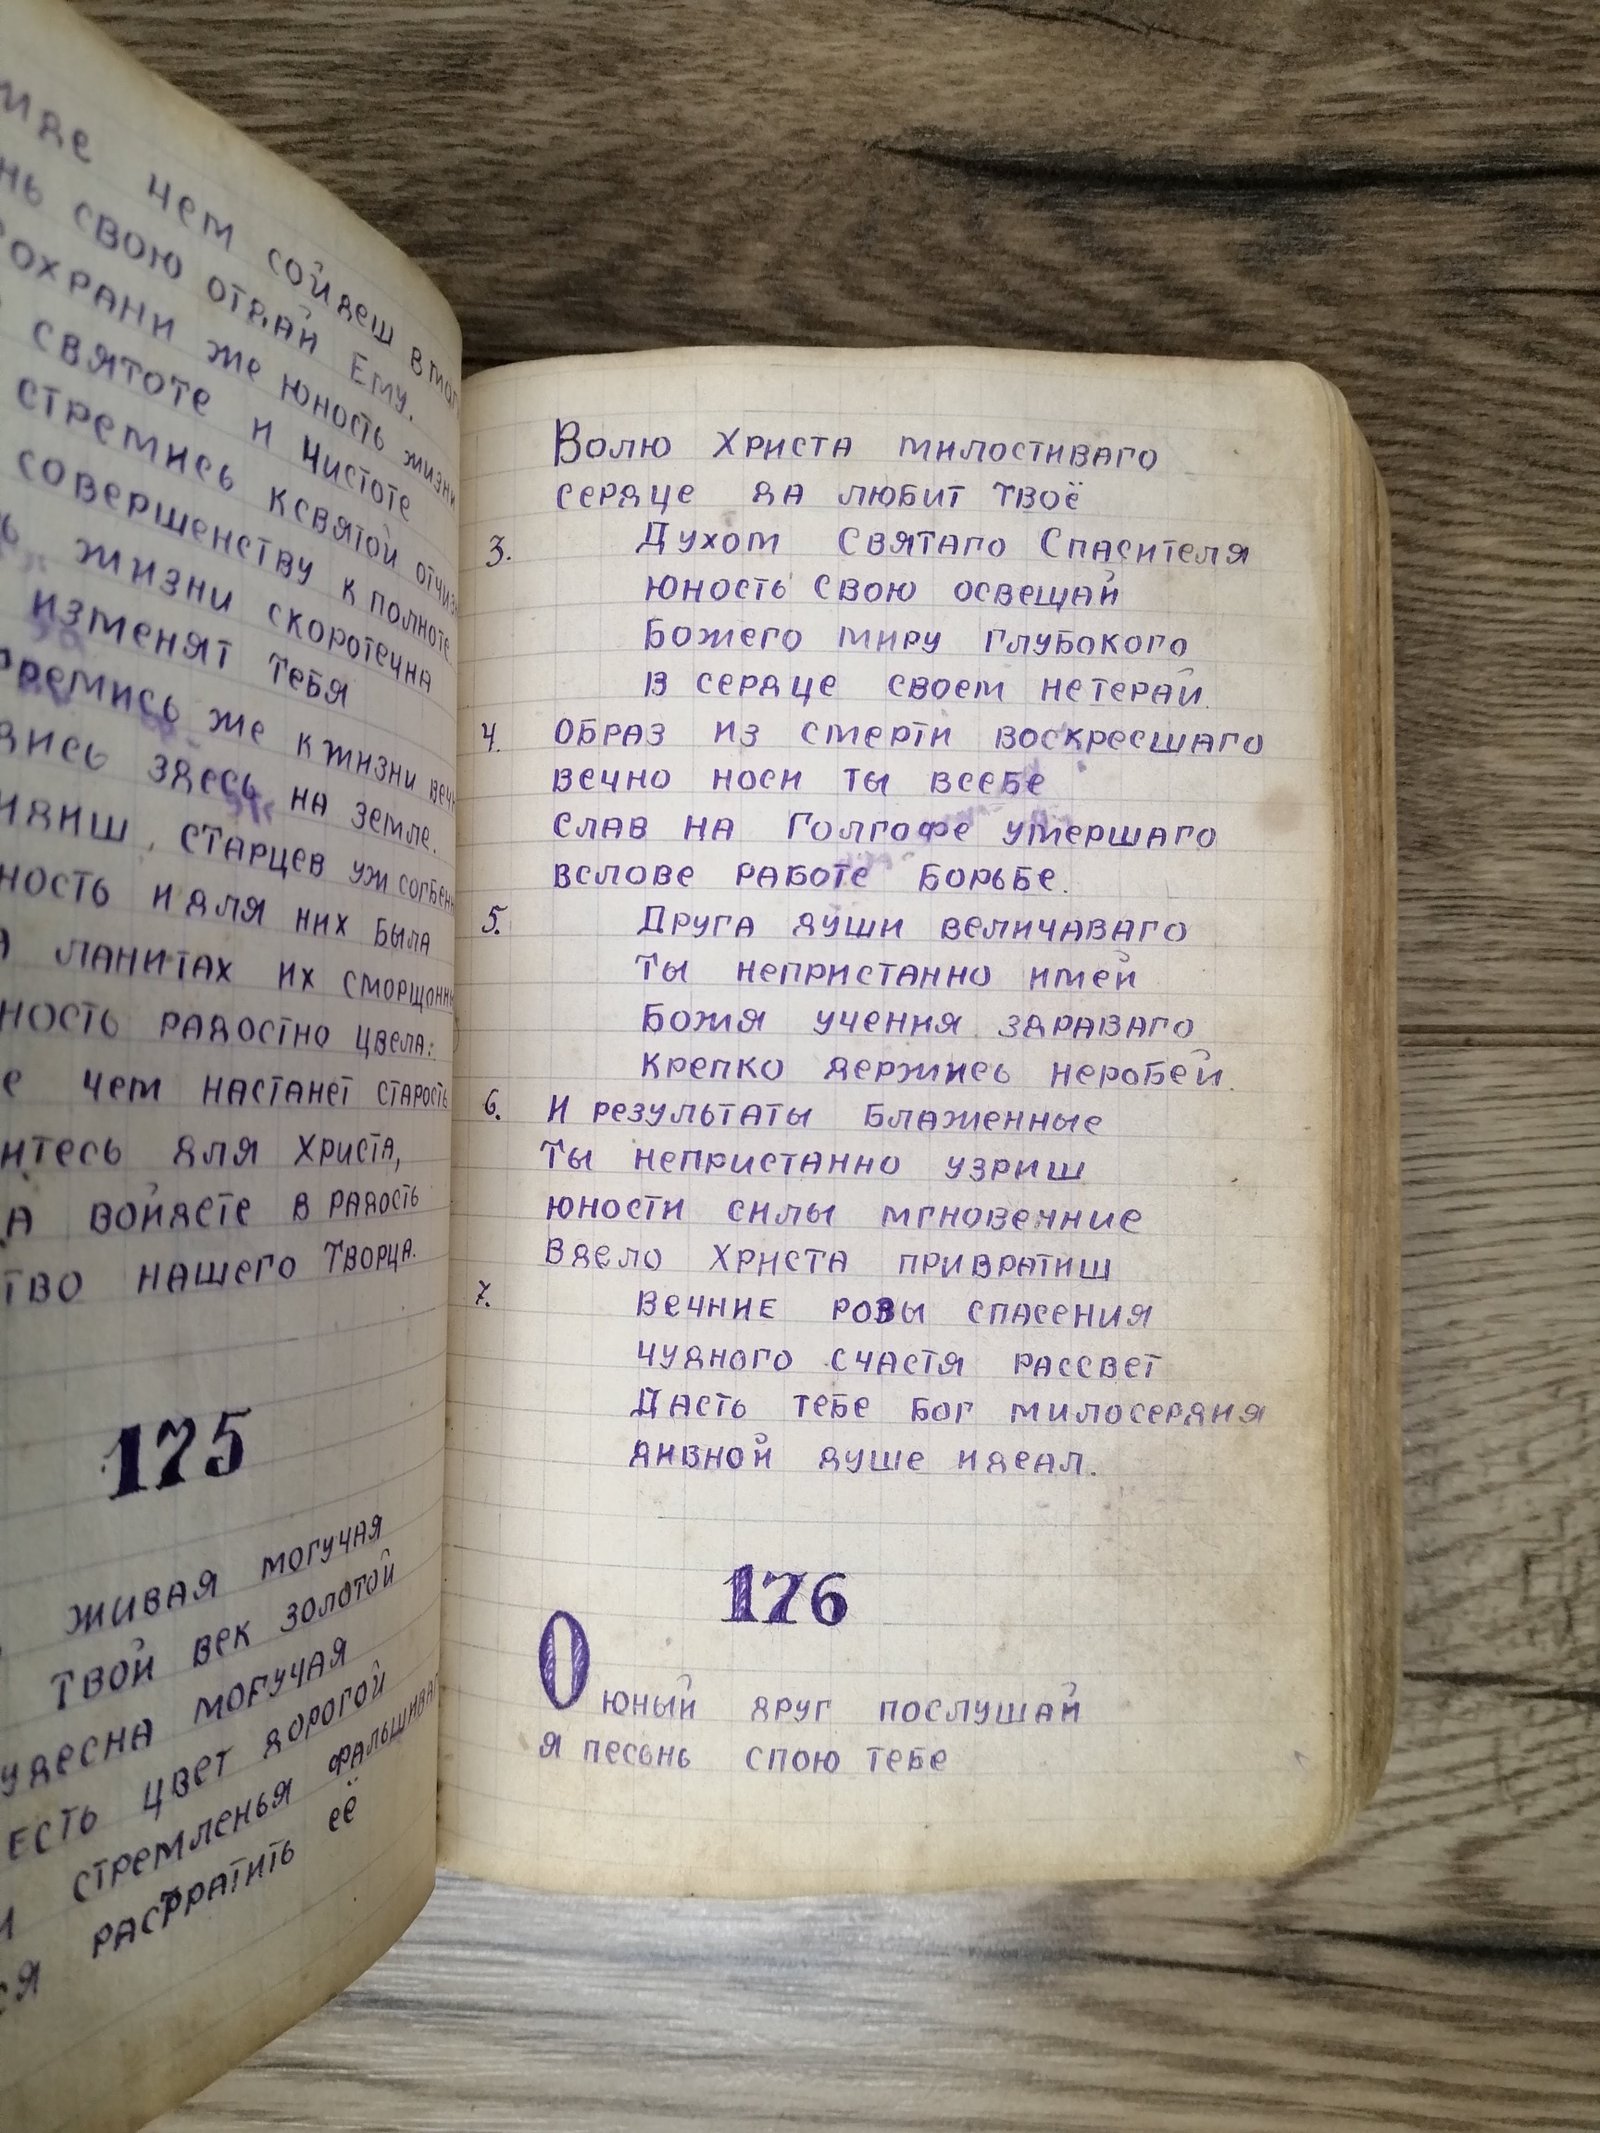 чем сойдеш
свою отдай Ему.
сохрани же юность жизни
святоте и чистоте
стремись ксвятой
совершенству к полноте.
жизни скоротечна
изменят тебя
же к жизни
здесь на земле.
старцев уж
и для них была
ланитах их
радостно цвела:
чем настанет старость
для Христа,
войдете в радость
нашего Творца.
175
живая могучая
твой век золотой
могучая
есть цвет дорогой
стремленья
растратить её
Волю Христа милостиваго
сердце да любит твоё
3. Духом Святаго Спасителя
юность свою освещай
Божего миру глубокого
в сердце своем нетерай.
4. Образ из смерти воскресшаго
вечно носи ты всебе
слав на Голгофе умершаго
вслове работе борьбе.
5. Друга души величаваго
Ты непристанно имей
Божия учения здраваго
крепко держись неробей.
6. И результаты блаженные
Ты непристанно узриш
юности силы мгновенние
Вдело Христа привратиш
7. Вечние розы спасения
чудного счастя рассвет
Дасть тебе Бог милосердия
дивной душе идеал.
176
О юный друг послушай
я песьнь спою тебе